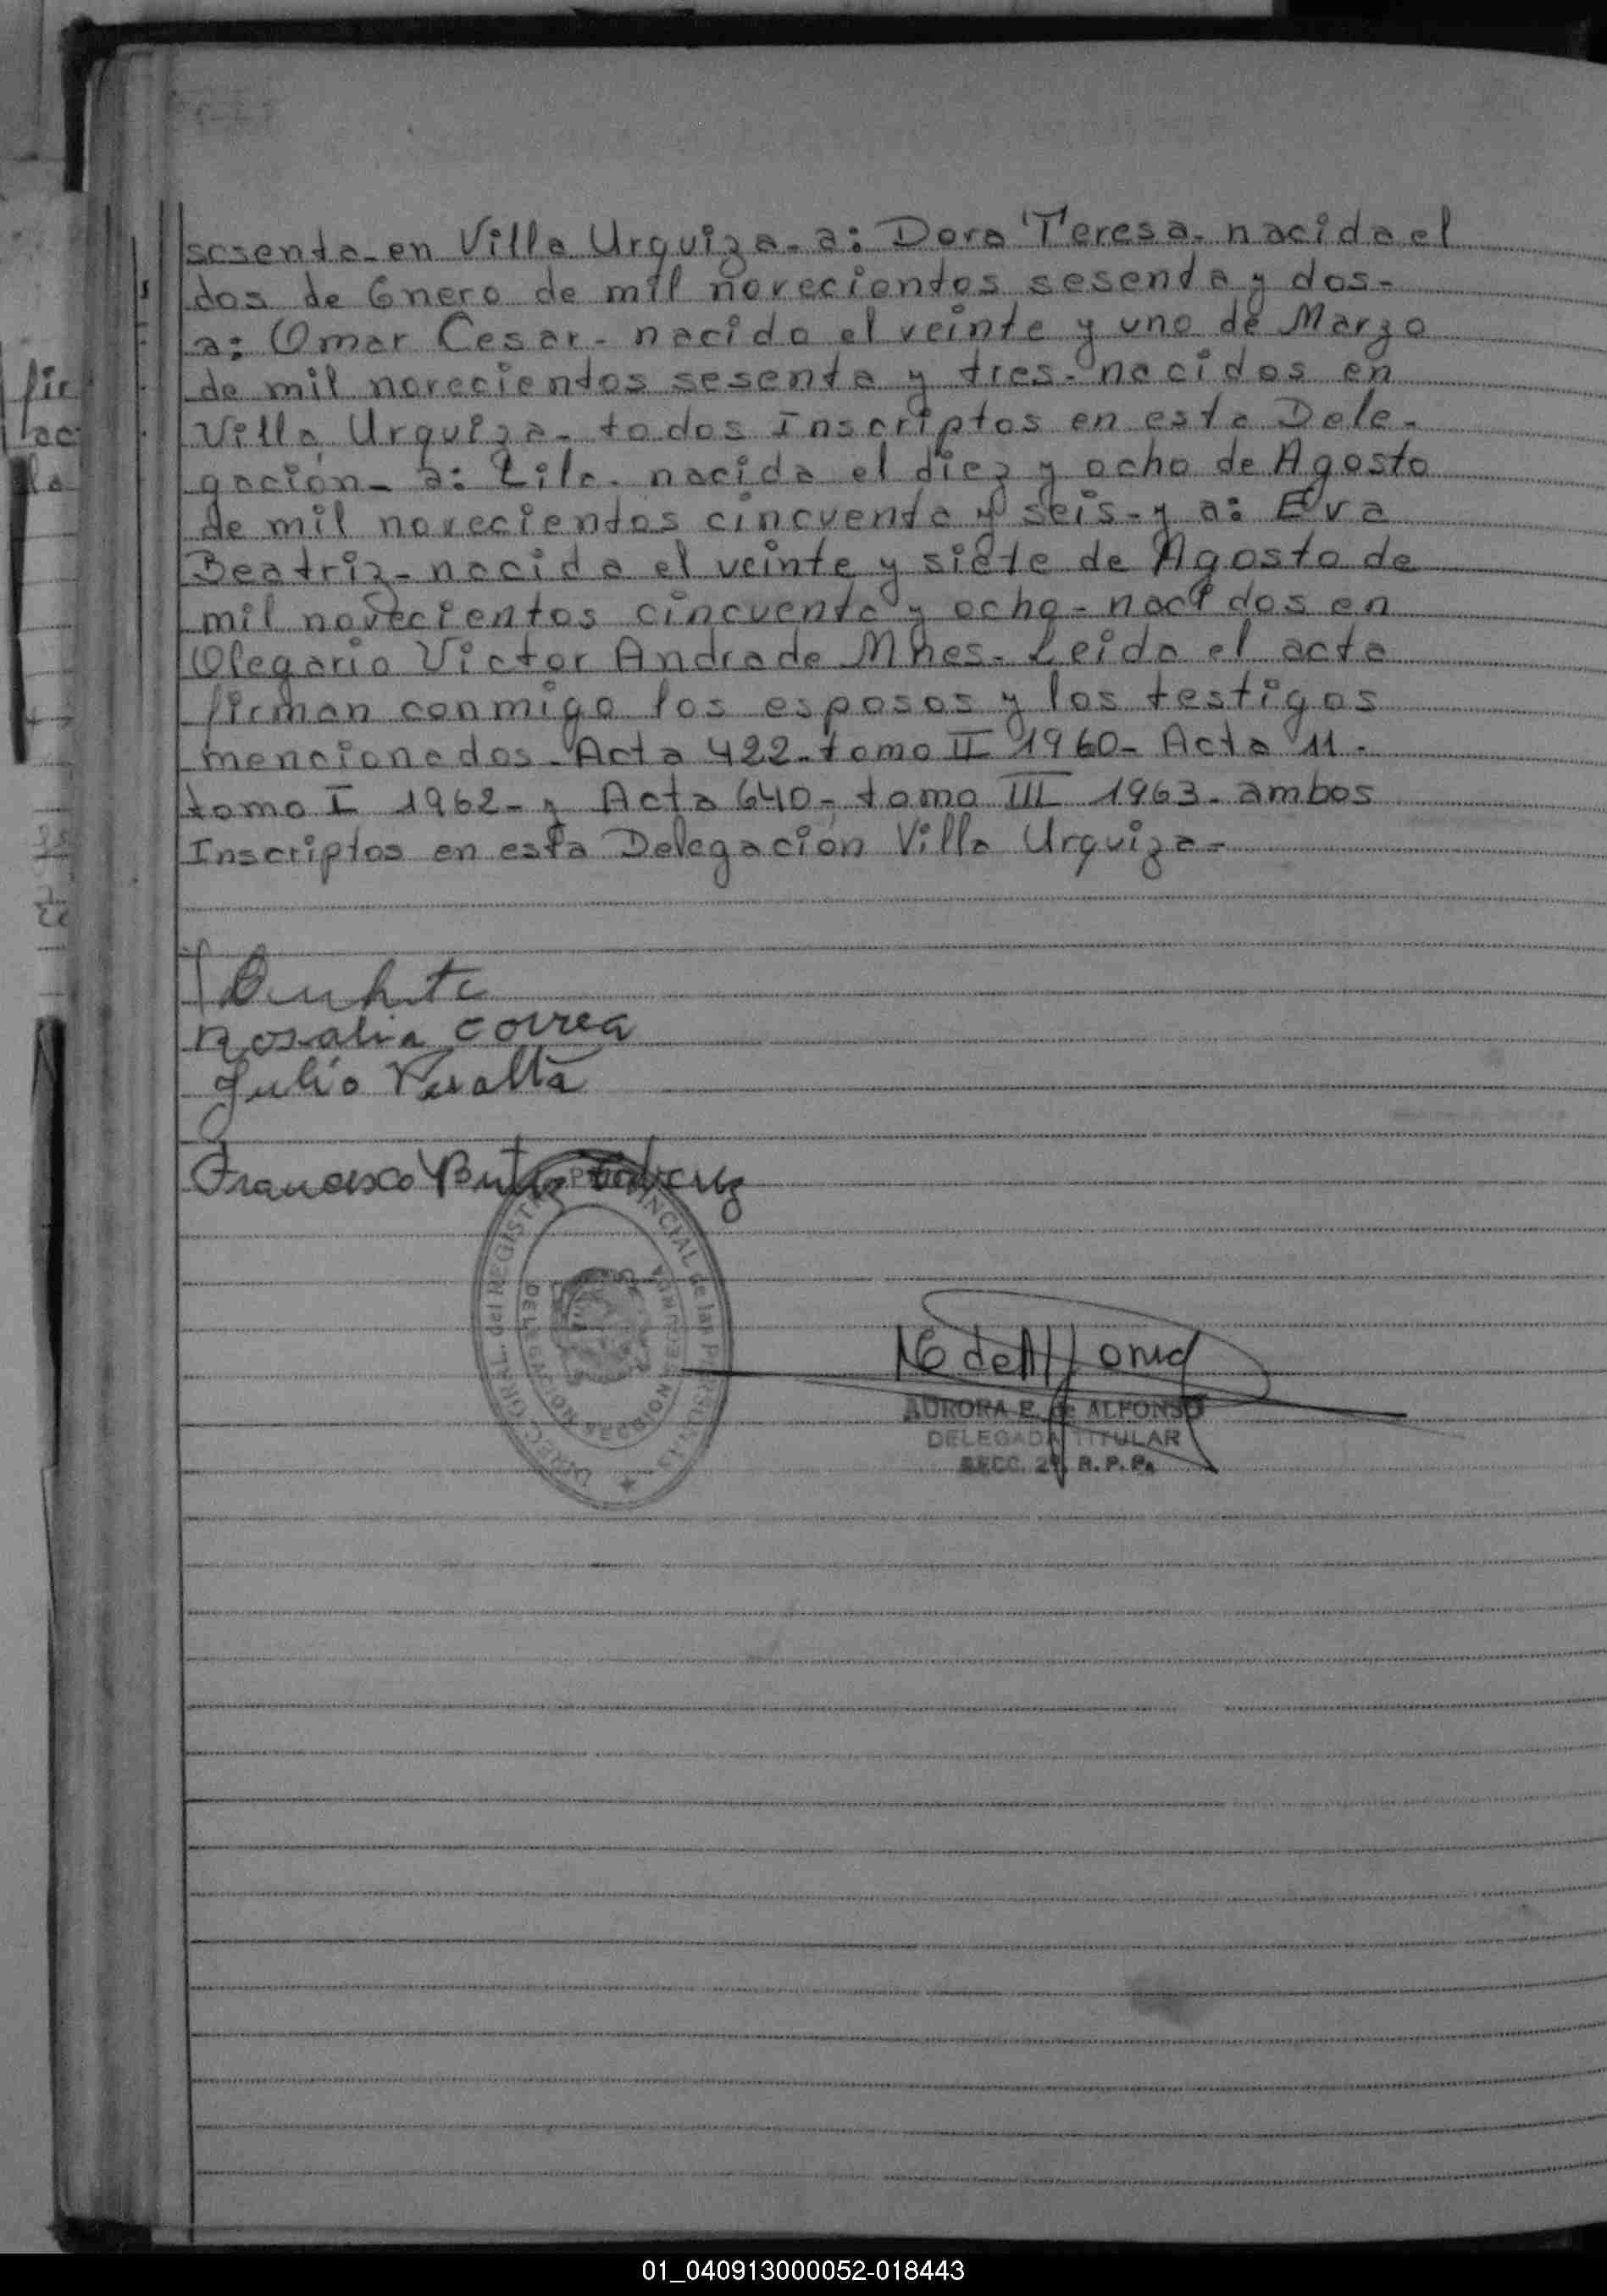 sesenta en Villa Urquiza - a: Dora Teresa. nacida el
dos de Enero de mil novecientos sesenta y dos-
a: Omar Cesar - nacido el veinte y uno de Marzo
de mil novecientos sesenta y tres - nacidos en
Villa Urquiza - todos Inscriptos en esta Dele-
gación - a: Lila. nacida el diez y ocho de Agosto
de mil novecientos cincuenta y seis - y a: Eva
Beatriz - nacida el veinte y siete de Agosto de
mil novecientos cincuenta y ocho - nacidos en
Olegario Victor Andrade Mnes - Leida el acta
firman conmigo los esposos y los testigos
mencionados - Acta 422 - tomo II 1960 - Acta 11 -
tomo I 1962 - y Acta 640 - tomo III 1963 - ambos
Inscriptos en esta Delegación Villa Urquiza -
Rosalia Correa
Julio Peralta
Francisco
DIREC. GRAL. del REGISTRO PROVINCIAL de las PERSONAS
DELEGACION SECCION SEGUNDA
AURORA E. de ALFONSO
DELEGADA TITULAR
SECC. 2ª. R. P. P.
fir
ac
la
01_040913000052-018443